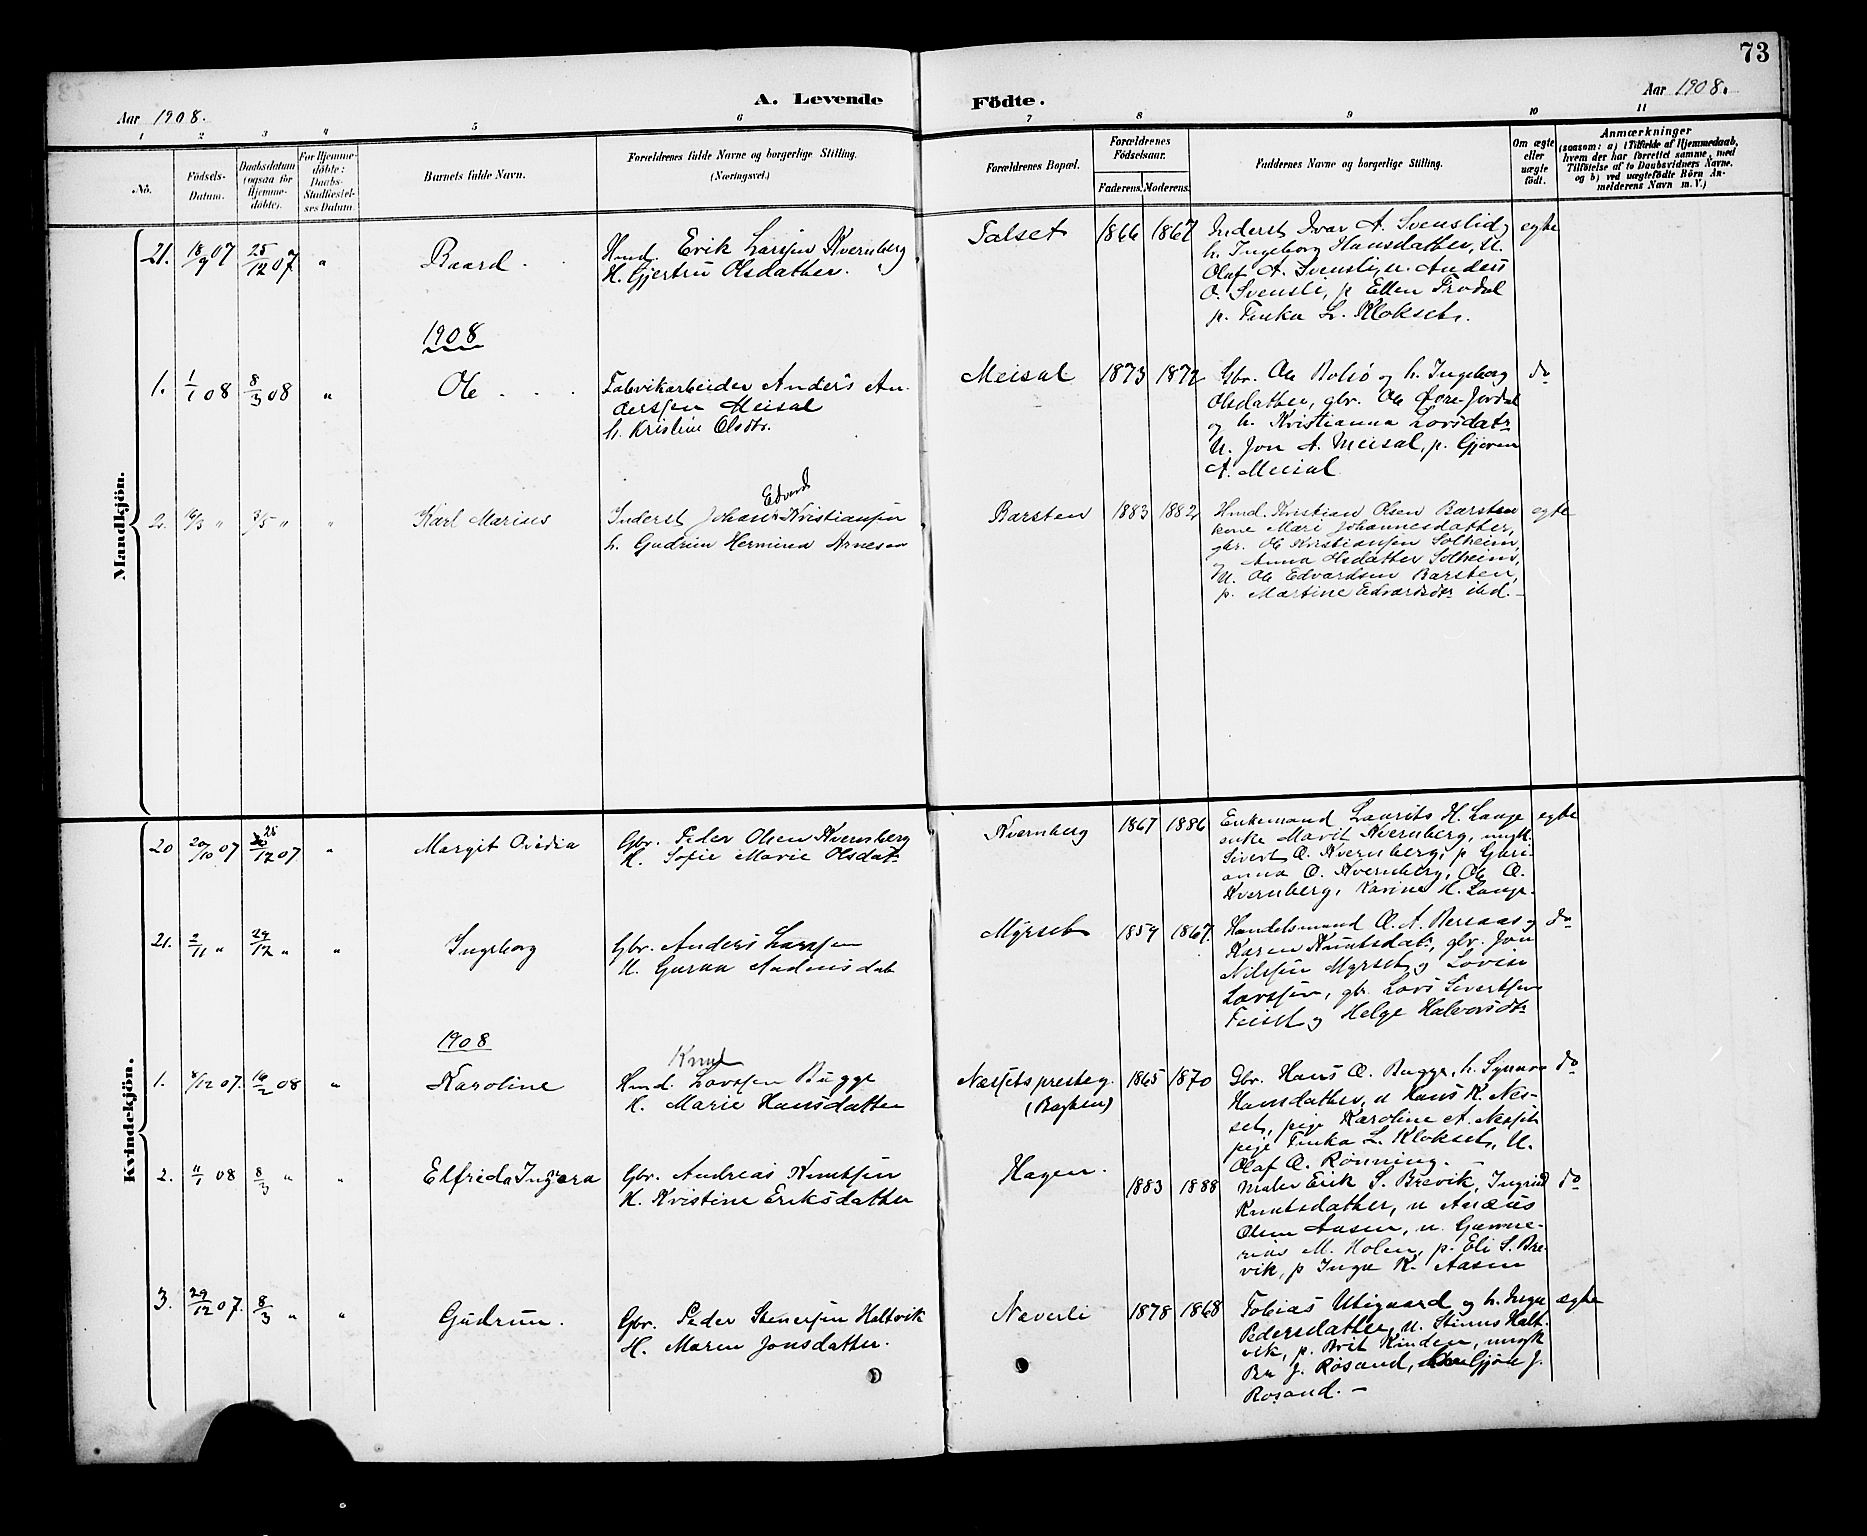 73
Aar 1908.
A. Levende Födte.
Aar 1908.
1 2 3 4 5 6 7 8 9 10 11
No.
Födsels-Datum.
Daabsdatum (ogsaa for Hjemme-döbte).
For Hjemme-döbte: Daabs-Stadfæstel-ses Datum.
Barnets fulde Navn.
Forældrenes fulde Navne og borgerlige Stilling.
(Næringsvei.)
Forældrenes Bopæl.
Forældrenes Födselsaar.
Faderens. Moderens.
Faddernes Navne og borgerlige Stilling.
Om ægte eller uægte födt.
Anmærkninger
(saasom: a) i Tilfælde af Hjemmedaab,
hvem der har forrettet samme, med
Tilföielse af to Daabsvidners Navne.
og b) ved uægtefödte Börn An-
melderens Navn m. V.)
Mandkjön.
21. 18/9 07 25/12 07 " Baard
Hmd. Erik Larssen Kvernberg
H. Gjertru Olsdatter.
Talset 1866 1867
Inderst Ivar A. Svenslid og
h. Ingeborg Hansdatter, U.
Olaf A. Svensli, u. Anders
O. Svensli, p Ellen Trodal
p. Finka L. Klokset.
egte
1908
1. 1/1 08 8/3 08 " Ole
Fabrikarbeider Anders An-
derssen Meisal
h. Kristine Olsdtr.
Meisal 1873 1872
Gbr. Ole Bolsö og h. Ingeborg
Olsdatter, gbr. Ole Öre-Jordal
og h. Kristianna Larsdatr
U. Jon A. Meisal, p. Gjoren
A. Meisal
do
2. 16/3 " 3/5 " " Karl Marius
Edvard
Inderst Johan Kristiansen
h. Gudrun Hermina Arnesen
Barsten 1883 1882
Hmd. Kristian Olsen Barsten
kone Mari Johannesdatter,
gbr. Ole Kristiansen Solheim,
og Anna Olsdatter Solheim,
U. Ole Edvardsen Barsten,
p. Martine Edvardsdtr ibd. -
egte
Kvindekjön.
20 20/10 07 25/12 07 " Margit Ovidia
Gbr. Peder Olsen Kvernberg
H. Sofie Marie Olsdat.
Kvernberg 1867 1886
Enkemand Laurits H. Lange
enke Marit Kvernberg, ungk.
Sivert O. Kvernberg, p Guri-
anna O. Kvernberg, Ole O.
Kvernberg, Karine H. Lange.
egte
21. 2/11 " 29/12 " " Ingeborg
Gbr. Anders Larssen
H. Guraa Andersdat
Myrset 1859 1867.
Handelsmand O. A. Bersaas og
Karen Knutsdat, gbr. Jon
Nilssen Myrset og Lovise
Larssen, gbr. Lars Sivertsen
Feiset og Helge Halvorsdtr
do
1908
1. 8/12 07. 16/2 08 " Karoline
Knut
Hmd. Larssen Bugge
H. Marie Hansdatter
Næssets presteg.
1865 1870
Gbr. Hans O. Bugge, h. Synnøv
Hansdatter, u Hans K. Nes-
set, pige Karoline A. Nesset
pige Finka L. Klokset, U.
Olaf O. Rönning.
do
2. 11/1 08 8/3 " " Elfrida Ingvara
Gbr. Andreas Knutsen
H. Kristine Eriksdatter
Hagen. 1883 1888
Maler Erik S. Brevik, Ingrid
Knutsdatter, u Anæus
Olsen Aasen, u. Gunne-
rius M. Holen, p. Eli S. Bre-
vik, p Inga K. Aasen
do
3. 29/12 07. 8/3 " " Gudrun.
Gbr. Peder Stenersen Haltvik
H. Maren Jonsdatter.
Neverli 1878 1868
Tobias Utigaard og h. Inga
Pedersdatter, U. Stinus Halt-
vik, p. Brit Kinden, ungk
J. Rösand, Gjöle J.
Rosand. -
ægte